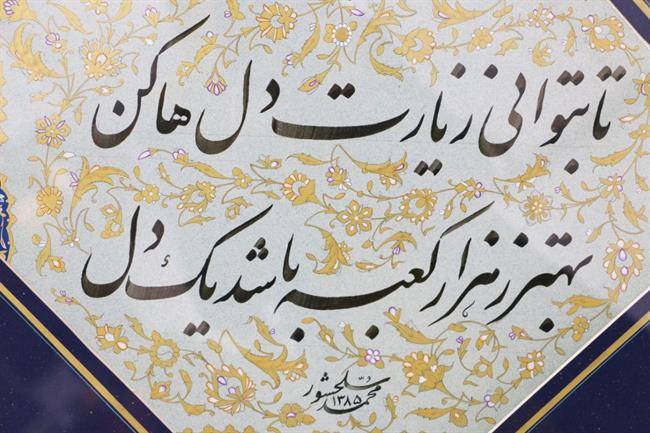 تا بتوانی زیارت دل ها کن
بهتر ز هزار کعبه باشد یک دل
محمد سلحشور
۱۳۸۵